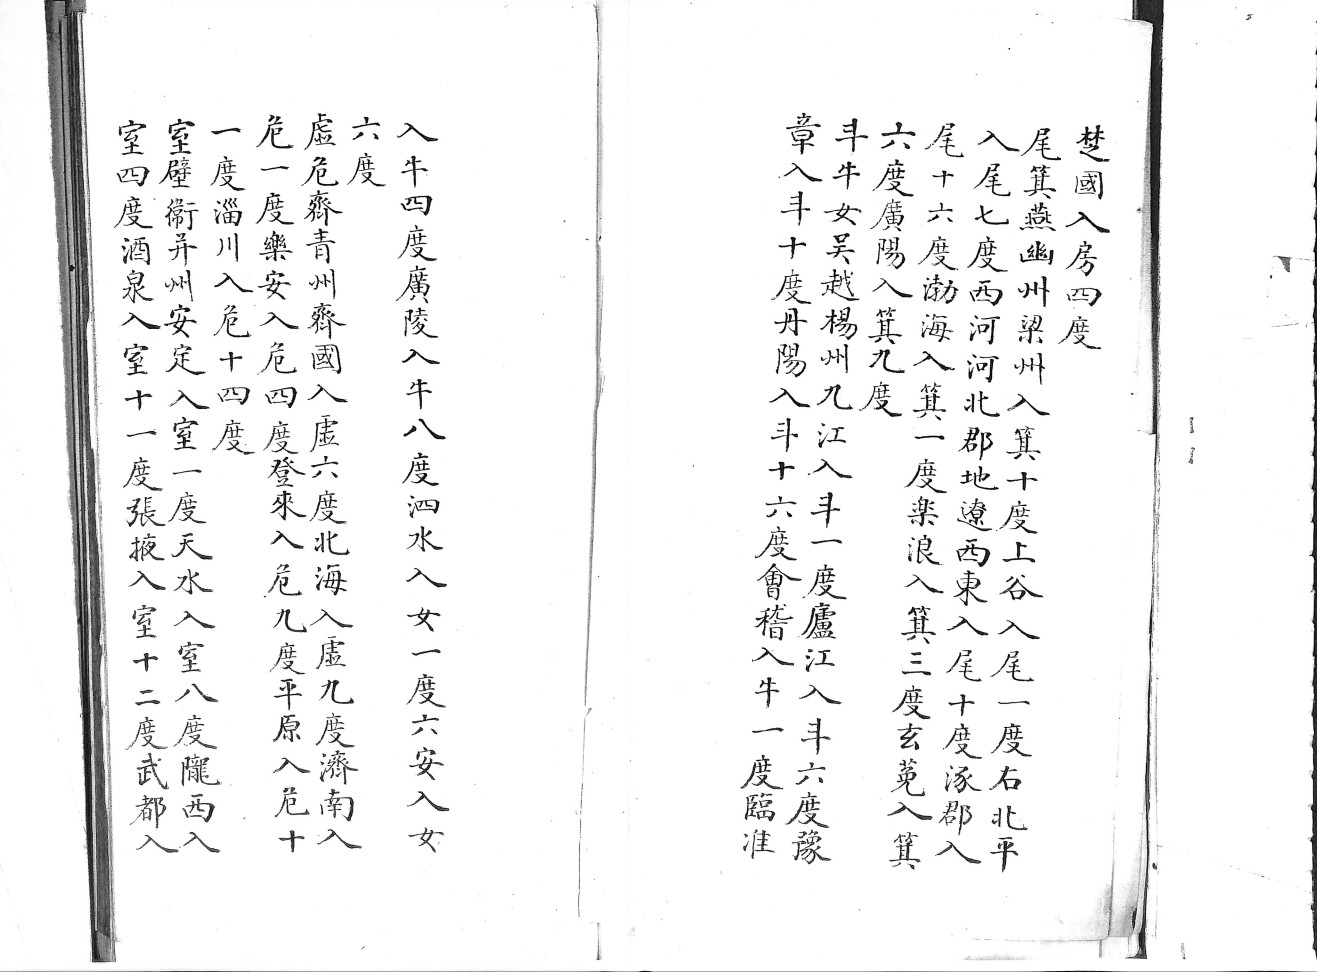 楚國入房四度
尾箕燕幽州梁州入箕十度上谷入尾一度右北平
入尾七度西河河北郡地遼西東入尾十度涿郡入
尾十六度渤海入箕一度楽浪入箕三度玄菟入箕
六度廣陽入箕九度
斗牛女吴越楊州九江入斗一度廬江入斗六度豫
章入斗十度丹陽入斗十六度會稽入牛一度臨淮
入牛四度廣陵入牛八度泗水入女一度六安入女
六度
虛危齊青州齊國入虛六度北海入虛九度濟南入
危一度樂安入危四度登來入危九度平原入危十
一度淄川入危十四度
室壁衞并州安定入室一度天水入室八度隴西入
室四度酒泉入室十一度張掖入室十二度武都入